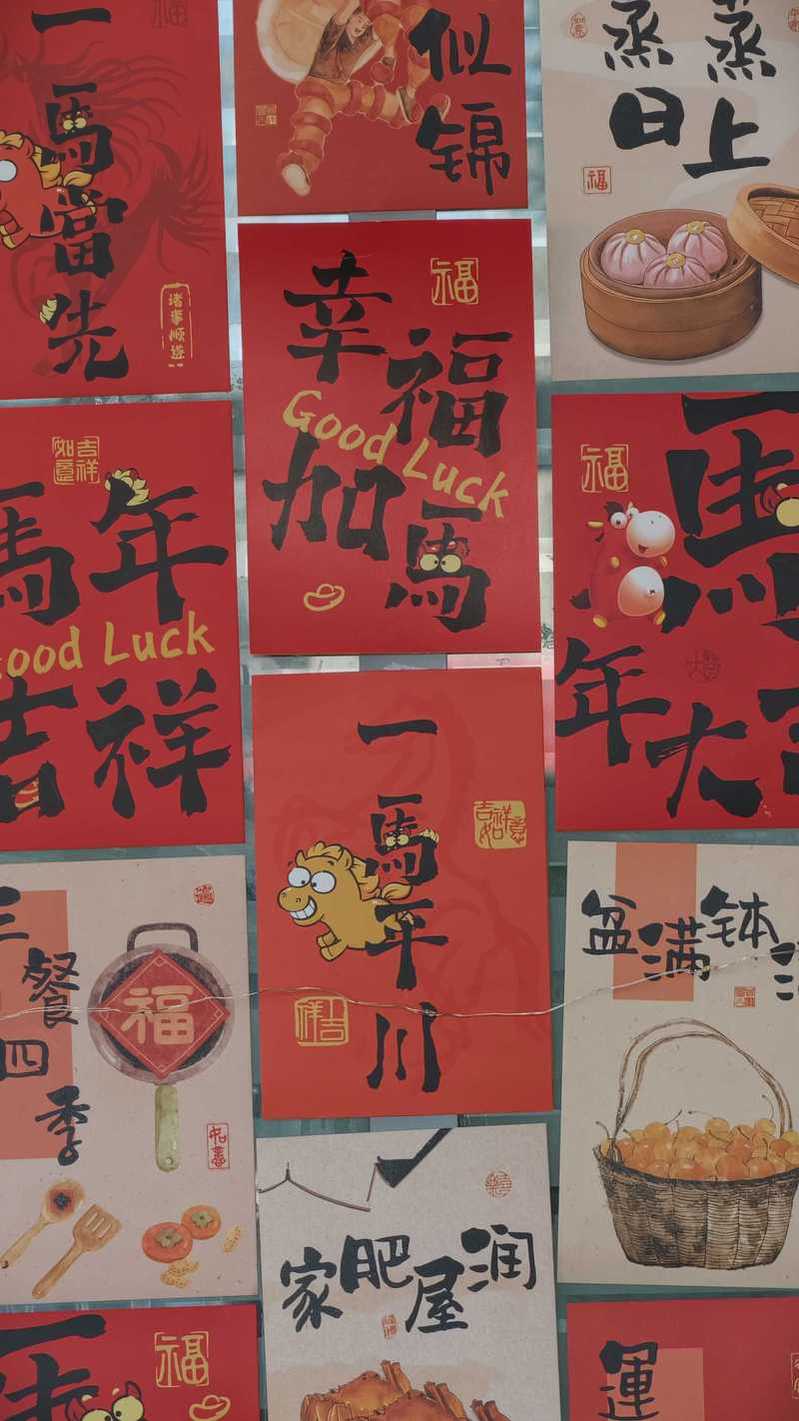 一馬當先
诸事顺遂
似锦
蒸蒸
日上
福
幸福
Good Luck
加馬
福
如意吉祥
馬年
Good Luck
吉祥
福
馬
年大吉
一馬平川
吉祥如意
三餐
四季
福
盆满钵满
家肥屋润
福
運